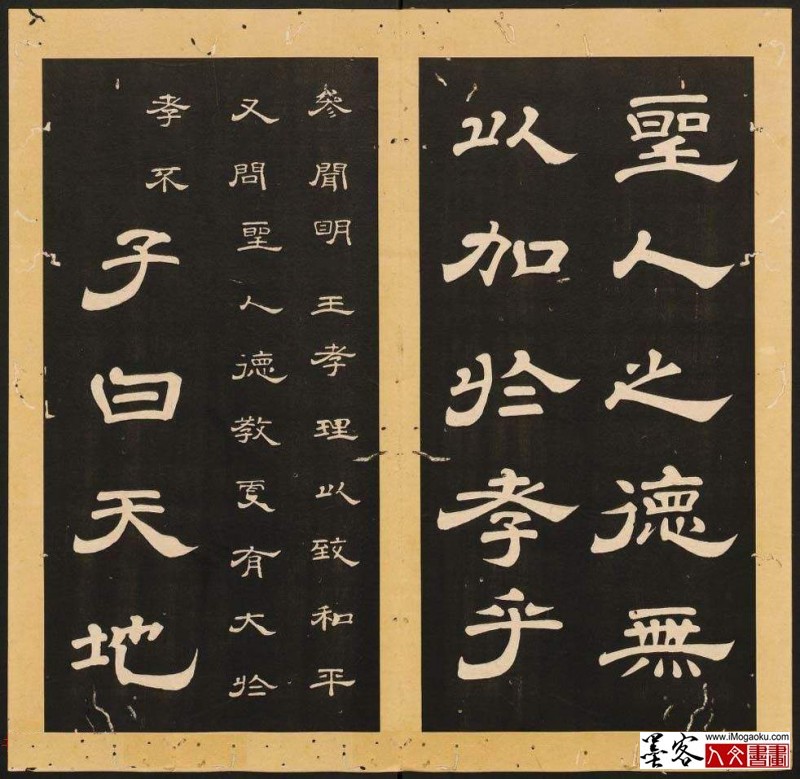 聖人之德無
以加於孝乎
參聞明王孝理以致和平
又問聖人德教更有大於
孝不
子曰天地
www.iMogaoku.com
墨客人文書畫